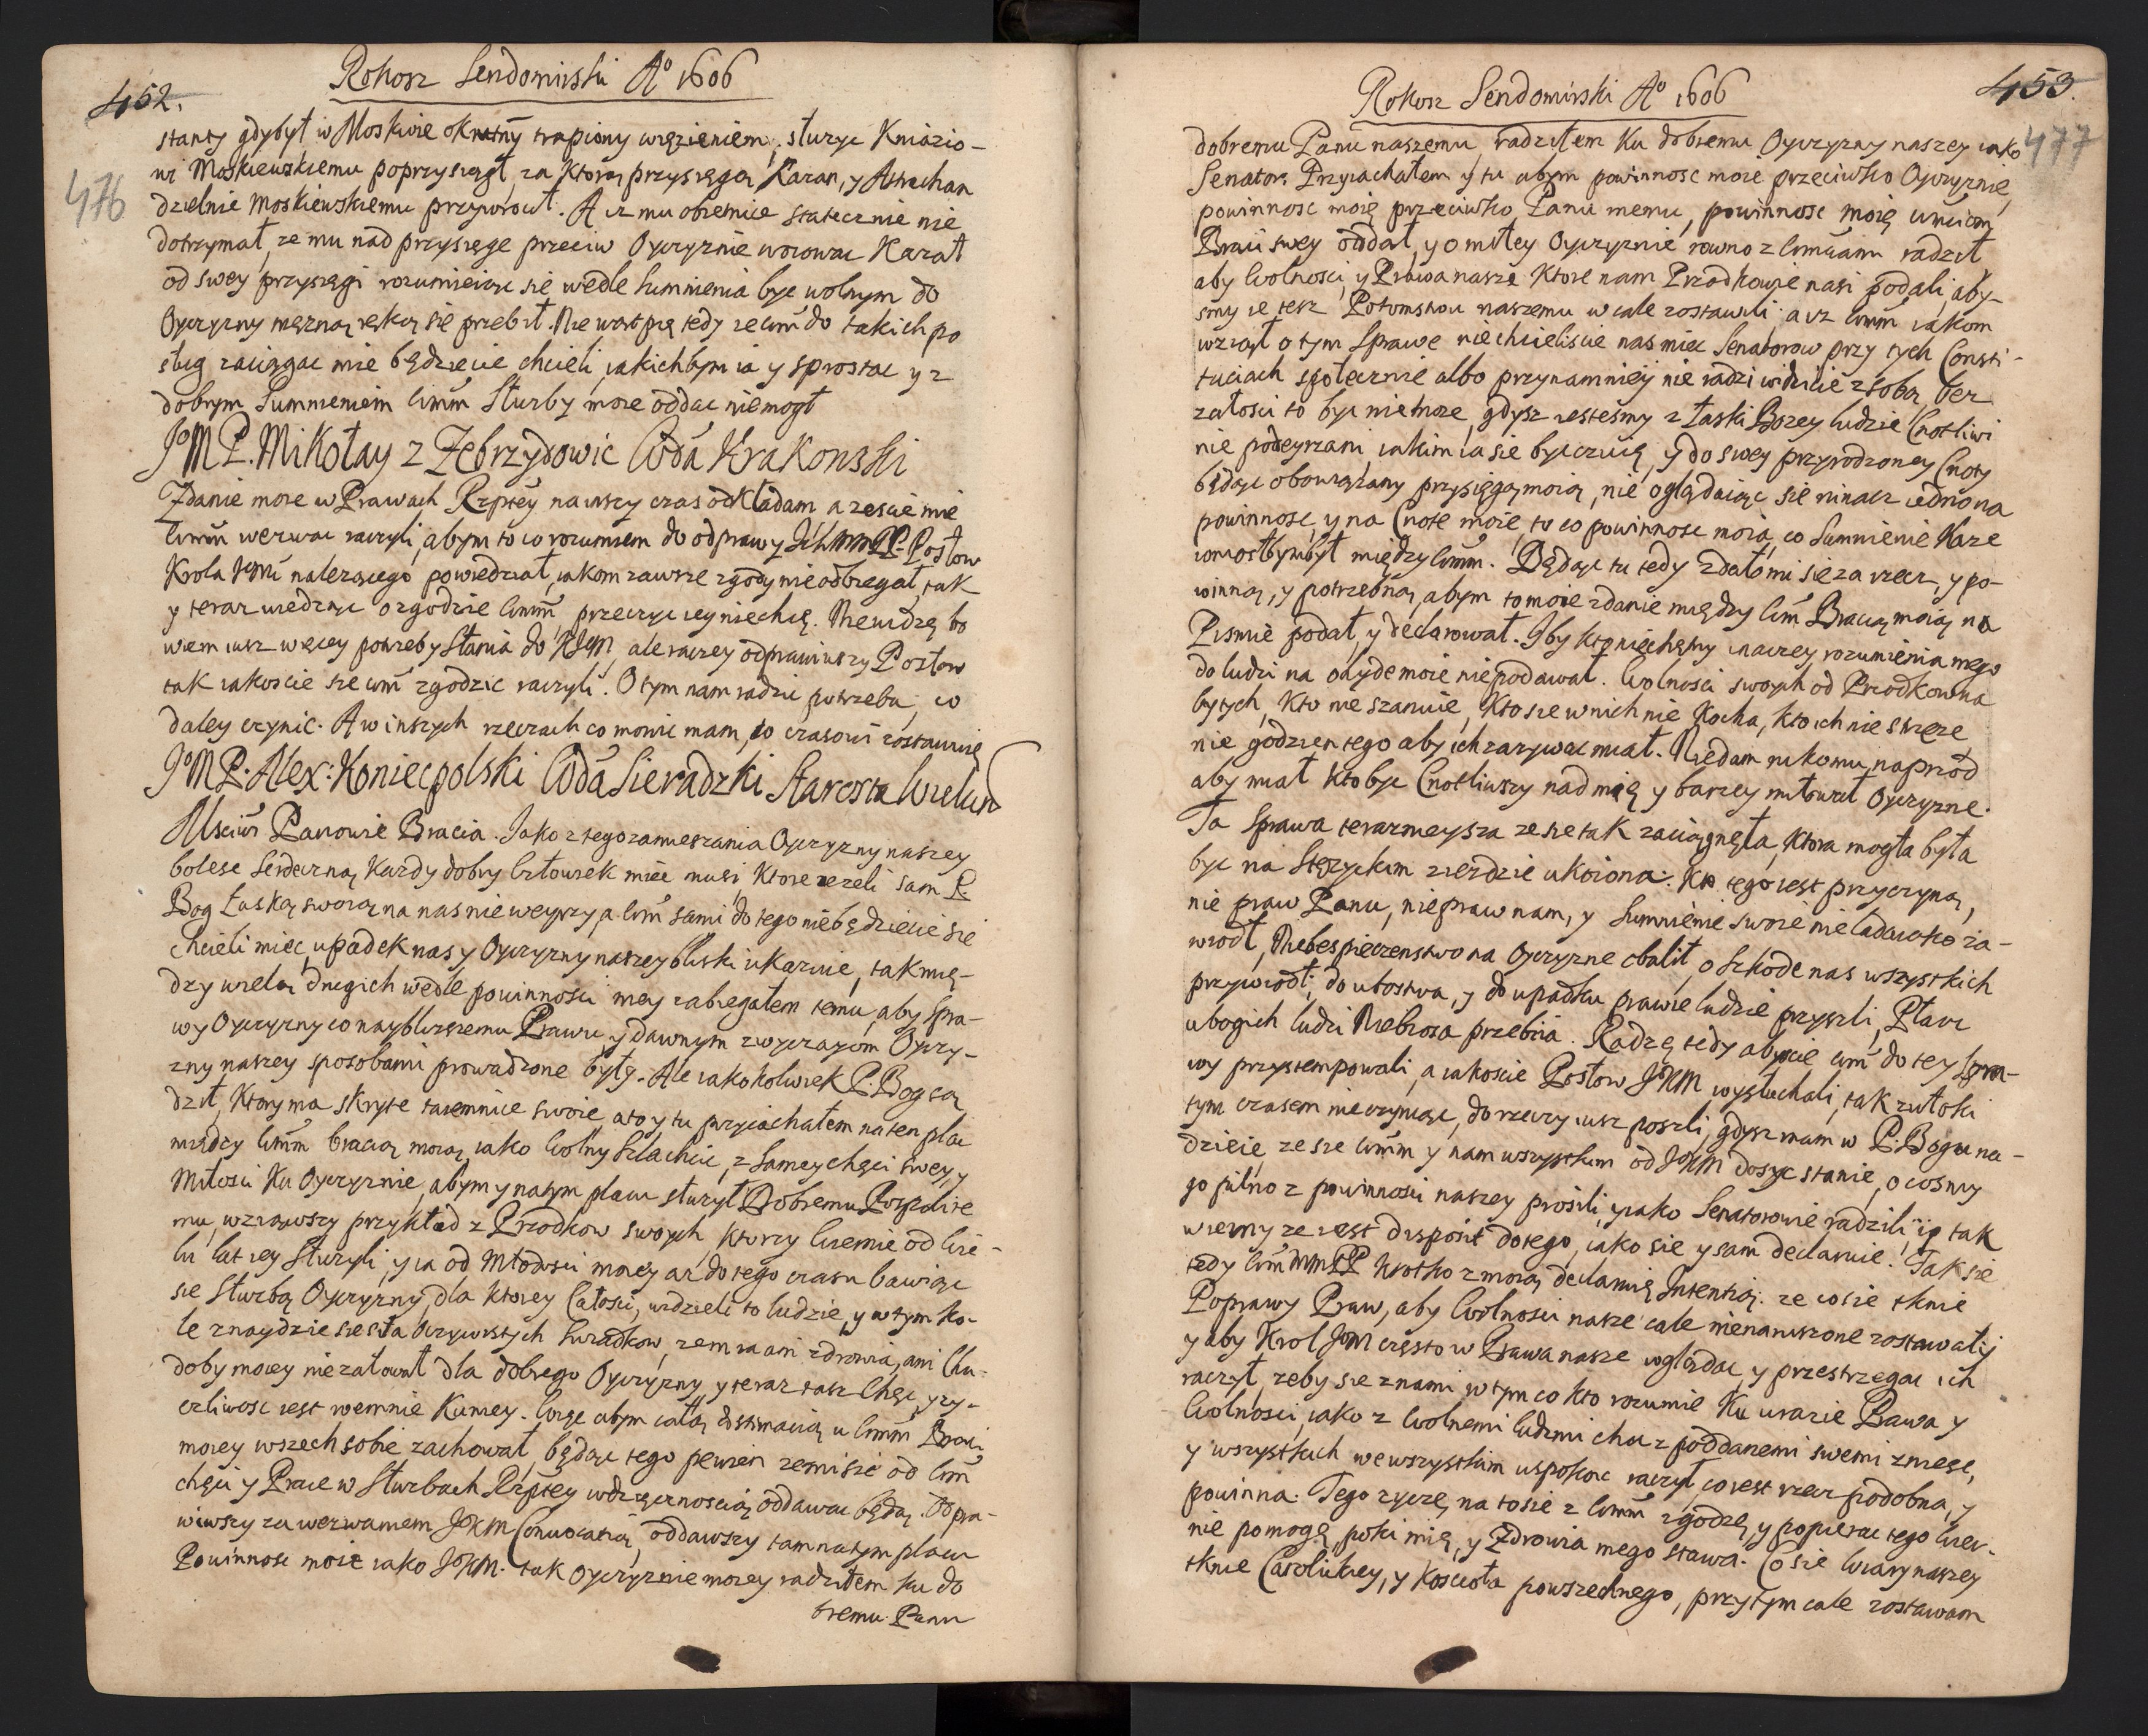 Rokosz Sendomirski Aº 1606
452.
476
stanty gdybył w Moskwie okrutny trapiony więzieniem, służyc Kniazio-
wi Moskiewskiemu poprzysiągł, za ktorą przysięgą Kazan, y Astrachan
dzielnie Moskiewskiemu przywrocił. A iz mu obietnice statecznie nie
dotrzymał, ze mu nad przysięge przeciw Oyczyznie woiowac Kazał
od swey przysięgi rozumieiąc się wedle sumnienia byc wolnym do
Oyczyzny mężną ręką się przebił. Nie wątpię tedy ze WM do takich po
sług zaciągac mie będziecie chcieli, iakichbym ia y sprostac y z
dobrym Sumnieniem WMM Służby moie oddac niemogł
JºM P. Mikołay z Zebrzydowic Woda Krakowski
Zdanie moie w Prawach Rzptey nawszy czas odkładam a zescie mie
WMM wezwac raczyli, abym to co rozumiem do odprawy Ich MM PP. Posłow
Krola JeMci nalezącego powiedział, iakom zawsze zgody nie odbiegał, tak
y teraz wiedząc o zgodzie WMM przeczyc iey niechcę. Niewidzę bo
wiem iusz więcey potrzeby Słania do KJeM ale raczey odprawiwszy Posłow
tak iakoscie sie WM zgodzic raczyli. O tym nam radzic potrzeba, co
daley czynic. A w inszych rzeczach co mowic mam, to czasowi zostawuię
JºM P. Alex: Koniecpolski Woda Sieradzki Starosta Wielun
Msciwi Panowie Bracia. Jako z tego zamieszania Oyczyzny naszey
bolesc serdeczną Kazdy dobry Człowiek miec musi, Ktore iezeli sam P
Bog Łaską swoią na nas nie weyrzy, a WM sami do tego niebędziecie się
chcieli miec, upadek nas y Oyczyzny naszey bliski ukazuie, tak mię-
dzy wielą drugich wedle powinnosci mey zabiegałem temu, aby spra-
wy Oyczyzny co naybliższemu Prawu, y dawnym zwyczayom Oyczy-
zny naszey sposobami prowadzone były. Ale iakokolwiek P. Bog są
dził, Ktory ma skryte taiemnice swoie, atoy tu przyiachałem na ten plac
między WMM bracią moią, iako Wolny Szlachcic, z samey chęci swey, y
Miłosci Ku Oyczyznie, abym y na tym placu służył Dobremu Pospolite
mu, wziąwszy przykład z Przodkow swoych, ktorzy wiernie od wie-
lu lat iey służyli, y ia od Młodosci moiey az do tego czasu bawiąc
sie służbą Oyczyzny, dla ktorey Całosci, widzieli to ludzie, y w tym ko-
le znaydzie sie siła oczywistych swiadkow, zem ia ani zdrowia, ani Chu-
doby moiey nie załował dla dobrego Oyczyzny, y teraz tasz Chęc, y zy-
czliwosc iest wemnie Ku niey. Chcę abym całą Estimacią u WMM Braci
moiey wszech sobie zachował, będąc tego pewien ze mi sie od WM
chęci y Prace w Służbach Rzptey wdzięcznoscią oddawac będą. Odpra-
wiwszy za wezwaniem JKM Convocatią, oddawszy tam na tym placu
Powinnosc moie iako JKM. tak Oyczyznie moiey radziłem ku do
bremu Panu
Rokosz Sendomirski Aº 1606
453.
477
dobremu Panu naszemu, radziłem Ku dobremu Oyczyzny naszey iako
Senator. Przyiachałem y tu abym powinnosc moie przeciwko Oyczyznie,
powinnosc moię przeciwko Panu memu, powinnosc moię WMciom
Braci swey oddał, y o miłey Oyczyznie rowno z WMciami radził
aby Wolnosci, y Prawa nasze Ktore nam Przodkowie nasi podali, aby-
smy ie tesz Potomstwu naszemu w cale zostawili, a iz WMM iakom
wziął o tym Sprawe niechcieliscie nas miec Senatorow przy tych Consti-
tuciach społecznie albo przynamniey nie radzi widzicie z sobą, bez
załosci to byc niemoze, gdysz iestesmy z Łaski Bozey ludzie Cnotliwi
nie podeyrzani, iakim ia sie byc czuię, y do swey przyrodzoney Cnoty
będąc obowiązany przysięgą moią, nie oglądaiąc sie ninacz iedno na
powinnosc, y na Cnote moię, to co powinnosc moia, co Sumnienie Kaze
wniosłbymbył między WMM. Będąc tu tedy zdało mi sie za rzecz, y po-
winną, y potrzebną, abym to moie zdanie między WM Bracią moią na
Pismie podał, y declarował. Zby kto niechętny inaczey rozumienia mego
do ludzi na ohyde moie niepodawał. Wolnosci swoych od Przodkow na
bytych, Kto nie szanuie, Kto sie w nich nie Kocha, kto ich nie strzeze
nie godzien tego aby ich zazywac miał. Niedam nikomu naprzod
aby miał Kto byc Cnotliwszy nad mię y barzey miłował Oyczyzne.
Ta Sprawa terazneysza ze sie tak zaciągnęła, Ktora mogła była
byc na Stęzyckim zieździe ukoiona. Kto tego iest przyczyną,
nie praw Panu, nie praw nam, y Sumnienie swoie nie ladaiako za-
wiodł, Niebespieczenstwo na Oyczyzne obalił, o Szkode nas wszystkich
przywiodł; do ubostwa, y do upadku prawie ludzie przyszli, Płacz
ubogich ludzi Niebiosa przebiia. Radzę tedy abyscie WM do tey spra-
wy przystempowali, a iakoscie Posłow JKM wysłuchali, tak zwłoki
tym czasem nieczyniąc, do rzeczy iusz poszli, gdysz mam w P. Bogu na-
dzieię ze sie WMM y nam wszystkim od JKM dosyc stanie, o cosmy
go pilno z powinnosci naszey prosili, y iako Senatorowie radzili, iż tak
wiemy ze iest disposit do tego, iako sie y sam declaruie. Tak sie
tedy WM MM PP krotko z moią declaruię Intentią: ze co sie tknie
Poprawy Praw, aby Wolnosci nasze cale nienaruszone zostawały
y aby Krol JeM często w Prawa nasze wglądac, y przestrzegac ich
raczył, zeby sie z nami w tym co kto rozumie Ku urazie Prawa y
Wolnosci, iako z Wolnemi ludzmi choc z poddanemi swemi zniesc,
y wszystkich we wszystkim uspokoic raczył, co iest rzecz podobna, y
powinna. Tego zyczę, na to sie z WMM zgodzę, y popierac tego wier-
nie pomogą, poki mię, y Zdrowia mego stawa. Co sie Wiary naszey
tknie Catolickiey, y Koscioła powszechnego, przy tym cale zostawam